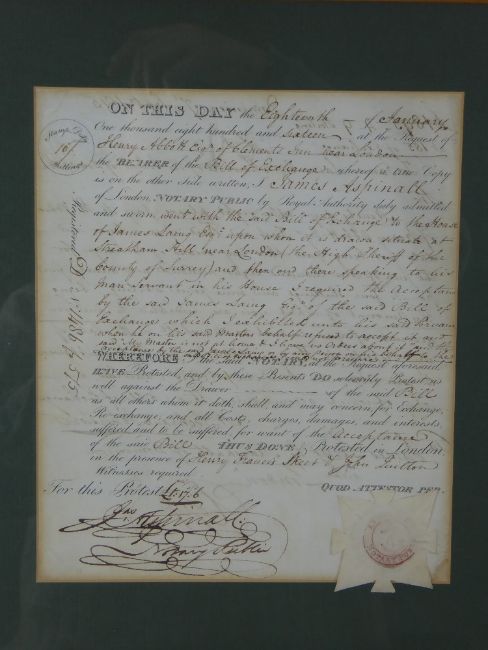 ON THIS DAY the Eighteenth of January
One thousand eight hundred and sixteen at the Request of
Henry Abbott Esqr of Clements Inn near London
the BEARER of the Bill of Exchange whereof a true Copy
is on the other side written, I James Aspinall
of London, NOTARY PUBLIC by Royal Authority duly admitted
and sworn went with the said Bill of Exchange to the House
of James Laing Esqr upon whom it is drawn situate at
Streatham Hill near London (the High Sheriff of the
County of Surrey) and then and there speaking to his
Man Servant in his House I required the Acceptance
by the said James Laing Esqr of the said Bill of
Exchange which I exhibited unto his said Servant
when he on his said Masters behalf refused to accept it and
said My Master is not at home & I have no orders about it
acceptance by the said James Laing on his behalf to the
WHEREFORE I the said NOTARY, at the Request aforesaid
HAVE Protested, and by these Presents DO solemnly Protest as
well against the Drawer of the said Bill
as all others whom it doth, shall, and may concern for Exchange,
Re-exchange, and all Costs, charges, damages, and interests
suffered and to be suffered for want of the acceptance
of the said Bill THUS DONE & Protested in London,
in the presence of Henry Francis Street & John Sutton
Witnesses required
For this Protest
QUOD ATTESTOR
Jas Aspinall
Notary Public